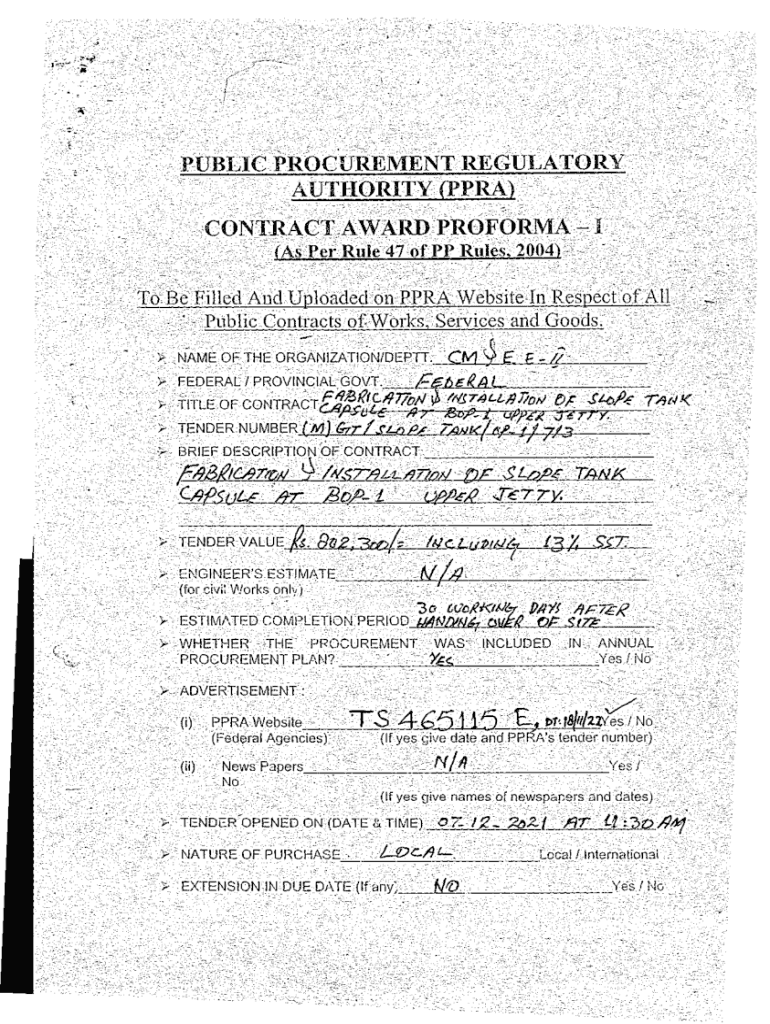 PUBLIC PROCUREMENT REGULATORY
AUTHORITY (PPRA)
CONTRACT AWARD PROFORMA – I
(As Per Rule 47 of PP Rules, 2004)
To Be Filled And Uploaded on PPRA Website In Respect of All
Public Contracts of Works, Services and Goods.
➢ NAME OF THE ORGANIZATION/DEPTT. CM & E. E-II
➢ FEDERAL / PROVINCIAL GOVT. FEDERAL
➢ TITLE OF CONTRACT FABRICATION & INSTALLATION OF SLOPE TANK
CAPSULE AT BOP-1 UPPER JETTY.
➢ TENDER NUMBER (M) GT/SLOPE TANK/OP-1/713
➢ BRIEF DESCRIPTION OF CONTRACT
FABRICATION & INSTALLATION OF SLOPE TANK
CAPSULE AT BOP-1 UPPER JETTY.
➢ TENDER VALUE Rs. 202,300/= INCLUDING 13% SST.
➢ ENGINEER'S ESTIMATE N/A
(for civil Works only)
30 WORKING DAYS AFTER
➢ ESTIMATED COMPLETION PERIOD HANDING OVER OF SITE
➢ WHETHER THE PROCUREMENT WAS INCLUDED IN ANNUAL
PROCUREMENT PLAN? YES Yes / No
➢ ADVERTISEMENT :
(i) PPRA Website TS 465115 E, DT: Yes / No
(Federal Agencies) (If yes give date and PPRA's tender number)
(ii) News Papers N/A Yes /
No
(If yes give names of newspapers and dates)
➢ TENDER OPENED ON (DATE & TIME) 07-12-2021 AT :30 AM
➢ NATURE OF PURCHASE LOCAL Local / International
➢ EXTENSION IN DUE DATE (If any) NO Yes / No